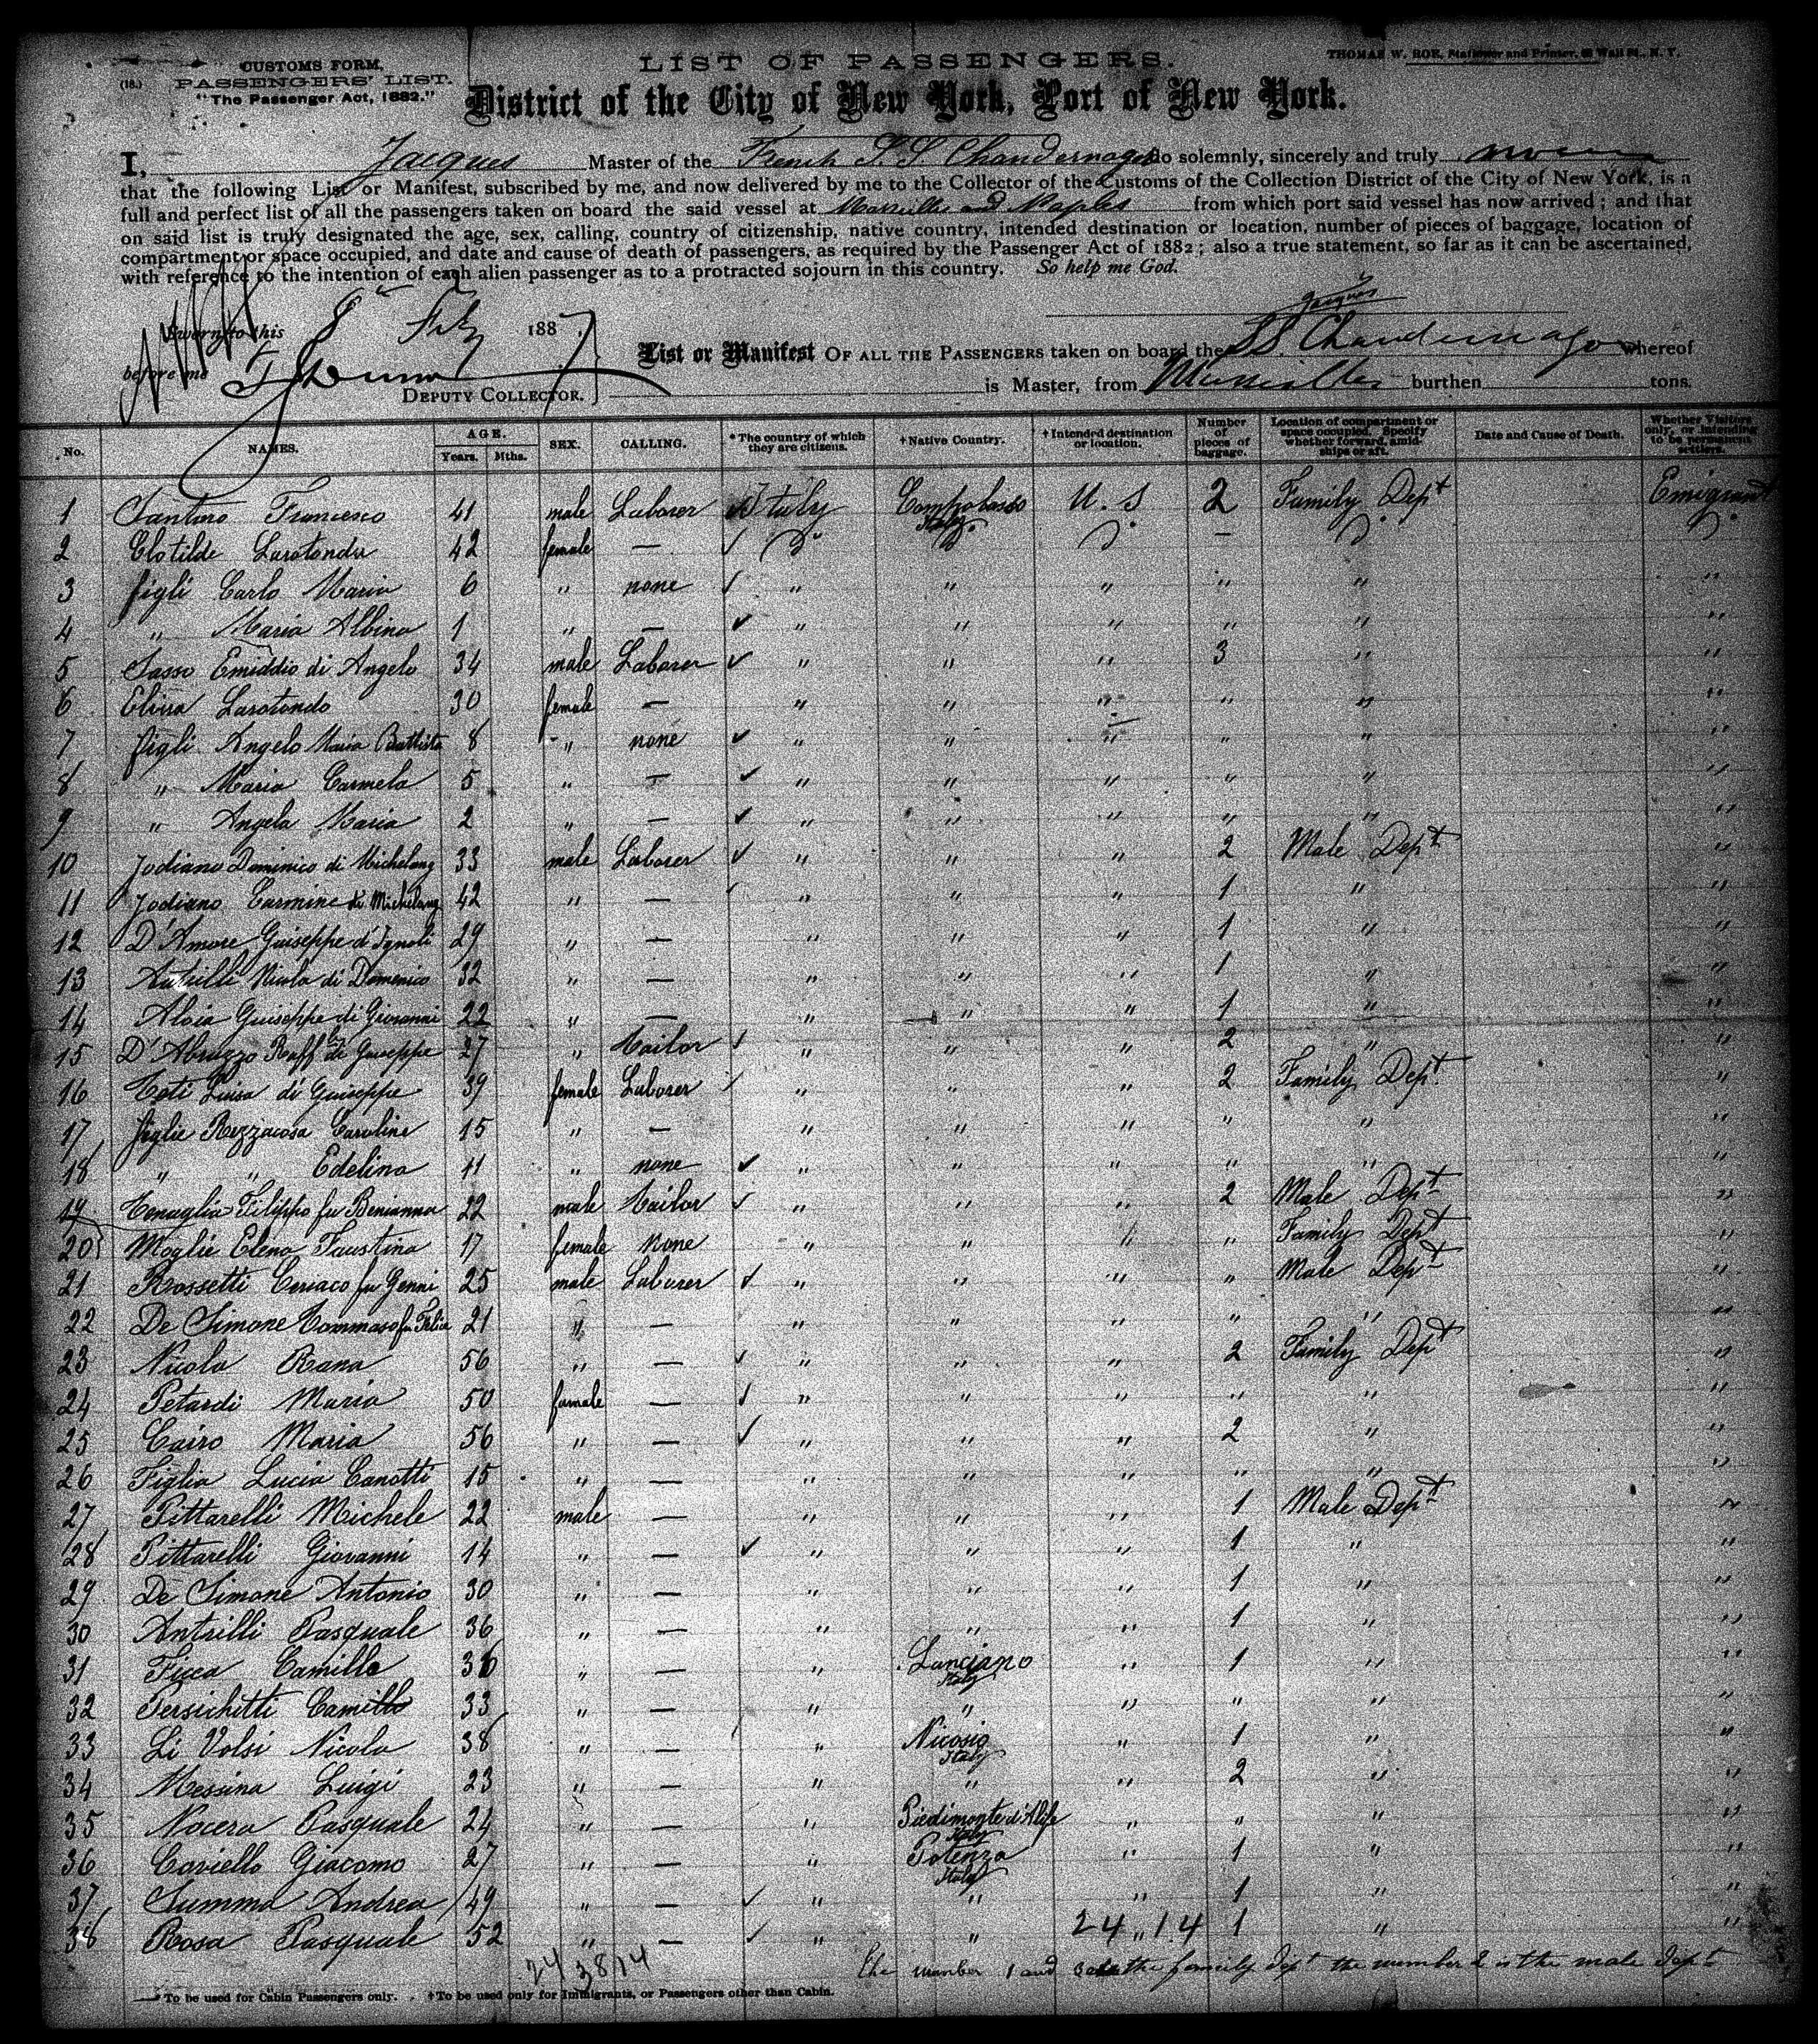 CUSTOMS FORM,
(18.) PASSENGERS' LIST.
"The Passenger Act, 1882."
LIST OF PASSENGERS.
THOMAS W. ROE, Stationer and Printer, Wall St., N. Y.
District of the City of New York, Port of New York.
I, Jacques Master of the French S.S Chandernagor do solemnly, sincerely and truly
that the following List or Manifest, subscribed by me, and now delivered by me to the Collector of the Customs of the Collection District of the City of New York, is a
full and perfect list of all the passengers taken on board the said vessel at Marseilles and Naples from which port said vessel has now arrived; and that
on said list is truly designated the age, sex, calling, country of citizenship, native country, intended destination or location, number of pieces of baggage, location of
compartment or space occupied, and date and cause of death of passengers, as required by the Passenger Act of 1882; also a true statement, so far as it can be ascertained,
with reference to the intention of each alien passenger as to a protracted sojourn in this country. So help me God.
Jacques
Sworn to this 8 Feby 1887.
List or Manifest OF ALL THE PASSENGERS taken on board the SS. Chandernagor whereof
before me
DEPUTY COLLECTOR.
is Master, from Marseilles burthen tons.
No. NAMES. AGE. Years. Mths. SEX. CALLING. *The country of which they are citizens. †Native Country. †Intended destination or location. Number of pieces of baggage. Location of compartment or space occupied. Specify whether forward, amidships or aft. Date and Cause of Death. Whether Visitors only, or intending to be permanent settlers.
1 Santoro Francesco 41 male Laborer Italy Campobasso Italy U.S 2 Family Dept Emigrant
2 Clotilde Larotonda 42 female — ✓ Do Do Do — Do Do
3 figli Carlo Maria 6 " none ✓ " " " " " "
4 " Maria Albina 1 " — ✓ " " " " " "
5 Sasso Emiddio di Angelo 34 male Laborer ✓ " " " 3 " "
6 Elvira Larotondo 30 female — " " " " " "
7 figli Angelo Maria Battista 8 " none ✓ " " " " " "
8 " Maria Carmela 5 " — ✓ " " " " " "
9 " Angela Maria 2 " — ✓ " " " " " "
10 Jodiano Dominico di Michelang 33 male Laborer ✓ " " " 2 Male Dept "
11 Jodiano Carmine di Michelang 42 " — ✓ " " " 1 " "
12 D'Amore Guiseppe 29 " — " " " 1 " "
13 Antrilli Nicola di Domenico 32 " — " " " 1 " "
14 Aloia Guiseppe di Giovanni 22 " — " " " 1 " "
15 D'Abruzzo Raff di Guiseppe 27 " Tailor ✓ " " " 2 " "
16 Teti Luisa di Guiseppe 39 female Laborer ✓ " " " 2 Family Dept. "
17 figlie Rezzacosa Caroline 15 " — " " " " " "
18 " " Edelina 11 " none ✓ " " " " " "
19 Tenaglia Filippo fu Benianna 22 male Tailor ✓ " " " 2 Male Dept "
20 Moglie Elena Faustina 17 female none " " " " Family Dept "
21 Rossetti Ceriaco fu Genni 25 male Laborer ✓ " " " " Male Dept "
22 De Simone Tommaso fu Felice 21 " — " " " " " "
23 Nicola Rana 56 " — ✓ " " " 2 Family Dept "
24 Petardi Maria 50 famale — ✓ " " " " " "
25 Cairo Maria 56 " — ✓ " " " 2 " "
26 Figlia Lucia Canotti 15 " — " " " " " "
27 Pittarelli Michele 22 male — " " " 1 Male Dept "
28 Pittarelli Giovanni 14 " — ✓ " " " 1 " "
29 De Simone Antonio 30 " — " " " 1 " "
30 Antrilli Pasquale 36 " — " " " 1 " "
31 Ficca Camillo 36 " — " Lanciano Italy " 1 " "
32 Persichitti Camillo 33 " — " " " " " "
33 Li Volsi Nicola 38 " — " Nicosia Italy " 1 " "
34 Messina Luigi 23 " — " " " 2 " "
35 Nocera Pasquale 24 " — " Piedimonte di Alife Italy " " " "
36 Coviello Giacomo 27 " — " Potenza Italy " 1 " "
37 Summa Andrea 49 " — ✓ " " " 1 " "
38 Rosa Pasquale 52 " — ✓ " " 24 " 14 1 " "
24 38 14
The number 1 and 3 the family Dept the number 2 is the male Dept
To be used for Cabin Passengers only. †To be used only for Immigrants, or Passengers other than Cabin.